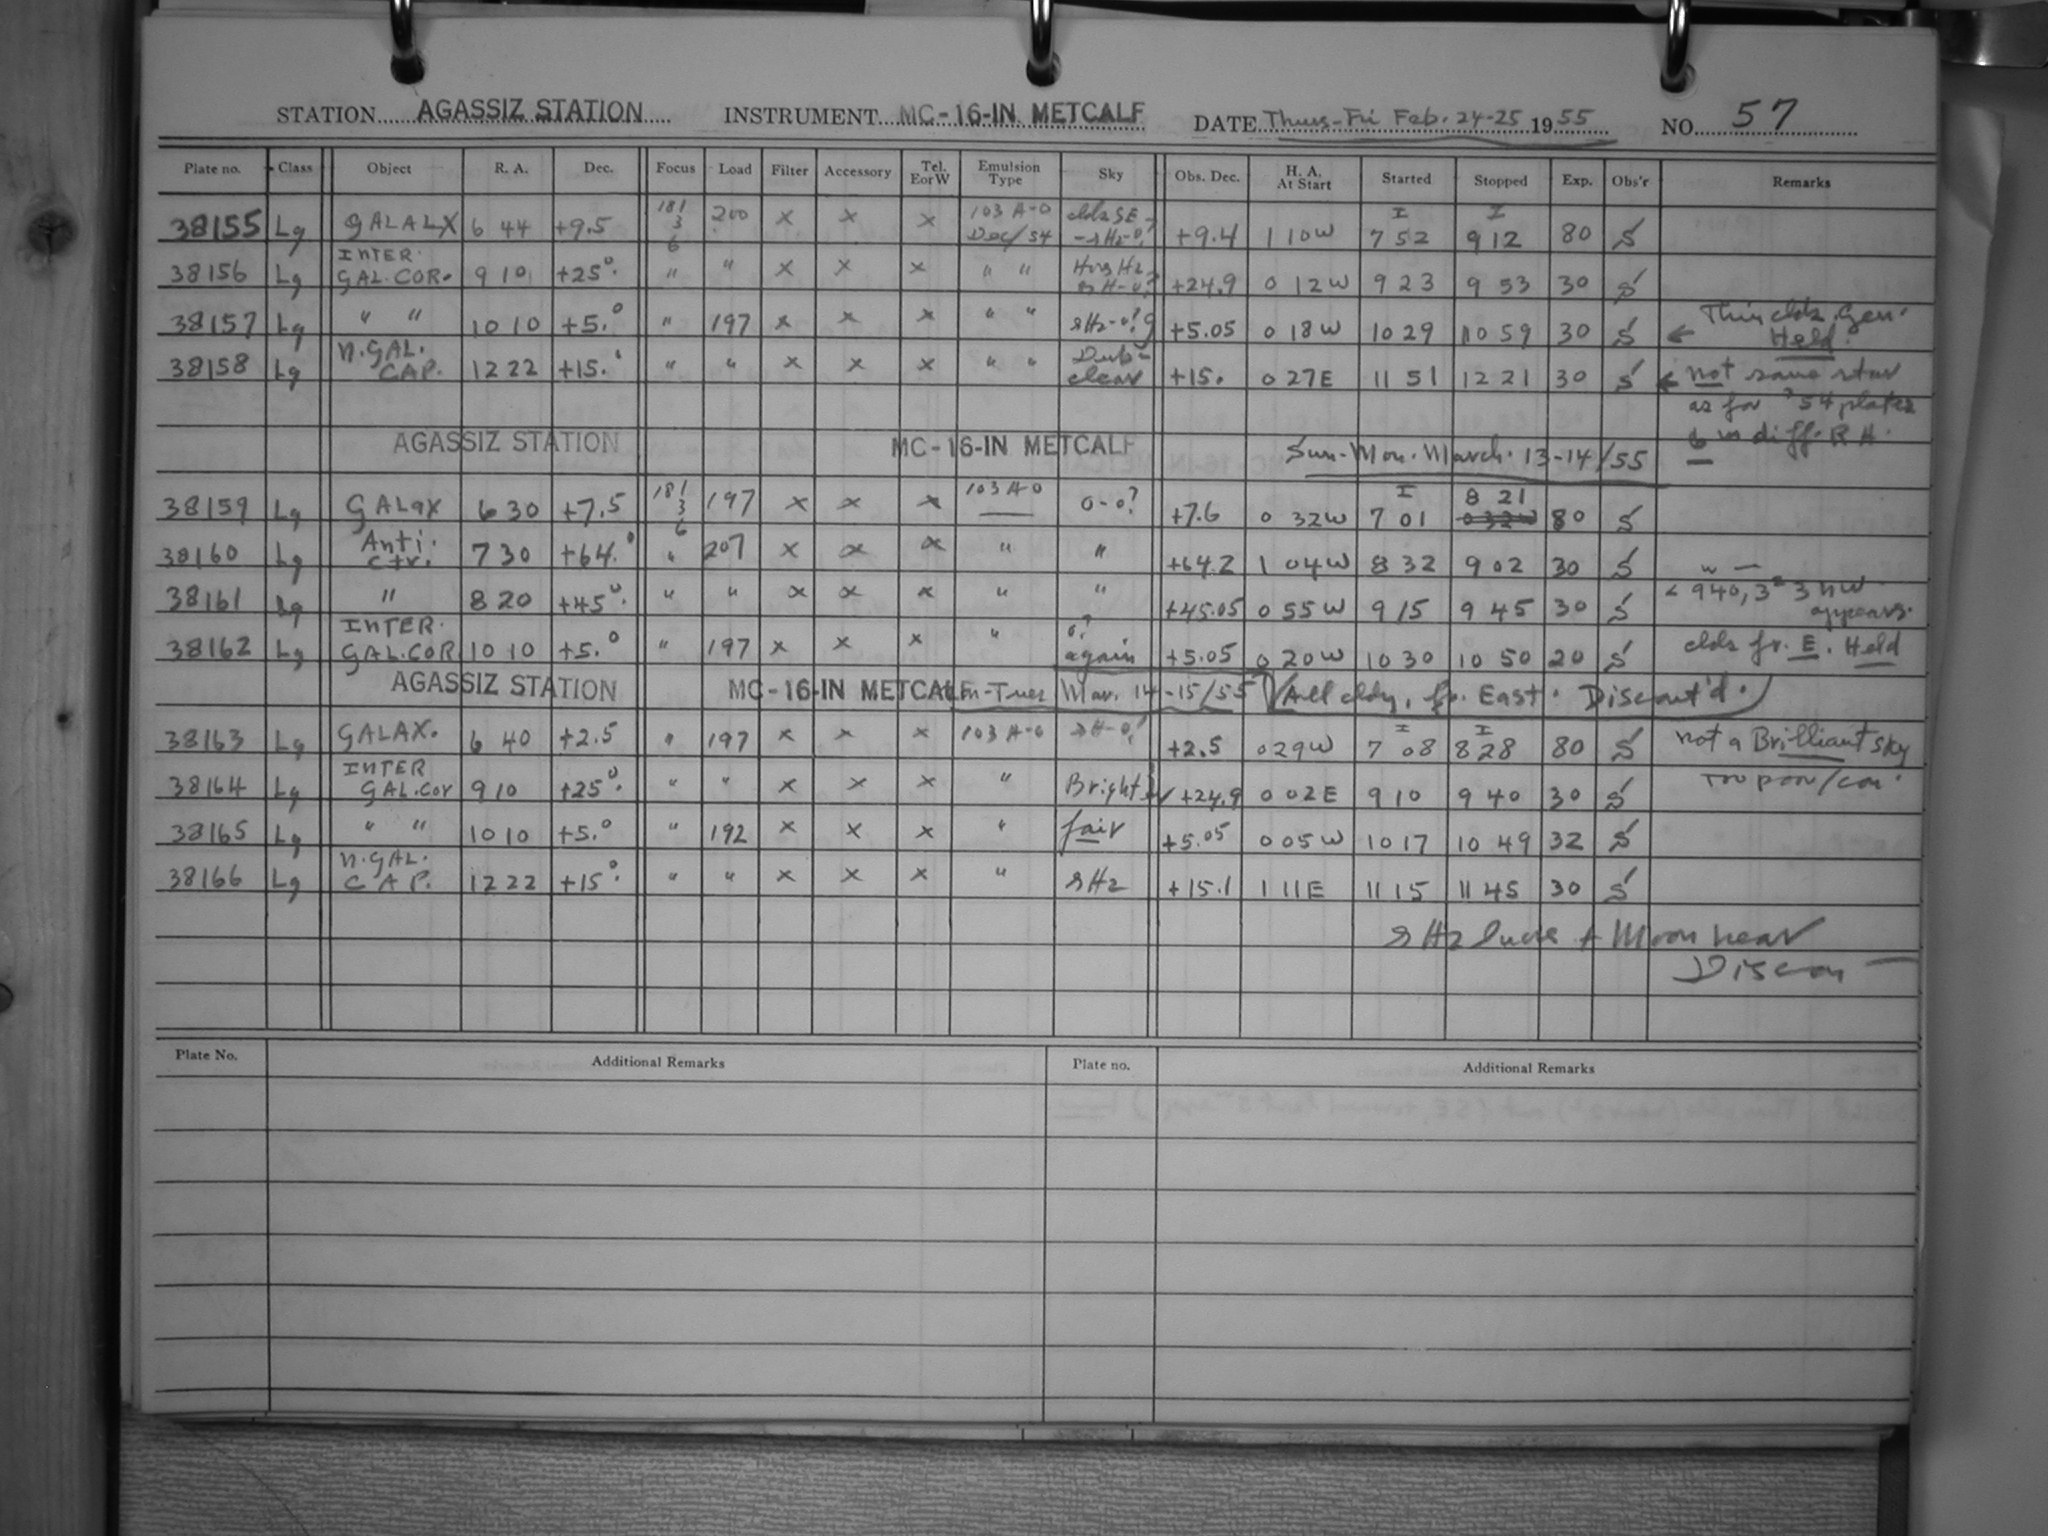 STATION AGASSIZ STATION INSTRUMENT MC-16-IN METCALF DATE Thurs-Fri Feb. 24-25 1955 NO. 57
Plate no. Class Object R. A. Dec. Focus Load Filter Accessory Tel. E or W Emulsion Type Sky Obs. Dec. H. A. At Start Started Stopped Exp. Obs'r Remarks
38155 Lg GALALX 6 44 +9.5 181 3 6 200 x x x 103 A-O Dec/54 clds SE +9.4 1 10W I 7 52 I 9 12 80 S
38156 Lg INTER. GAL.COR. 9 10 +25°. " " x x x " " +24.9 0 12W 9 23 9 53 30 S
38157 Lg " " 10 10 +5.° " 197 x x x " " +5.05 0 18W 10 29 10 59 30 S ← Thin clds. Gen. Held
38158 Lg N.GAL. CAP. 12 22 +15.° " " x x x " " clear +15. 0 27E 11 51 12 21 30 S ← not same star
as for '54 plates
in diff. R.A.
AGASSIZ STATION MC-16-IN METCALF Sun-Mon. March. 13-14/55
38159 Lg GALaX 6 30 +7.5 181 3 6 197 x x x 103 A-O 0-0? +7.6 0 32W I 7 01 8 21 80 S
38160 Lg Anti. Ctr. 7 30 +64.° " 207 x x x " " +64.2 1 04W 8 32 9 02 30 S
38161 Lg " 8 20 +45°. " " x x x " " +45.05 0 55W 9 15 9 45 30 S < 940, 3 NW appears.
38162 Lg INTER. GAL.COR 10 10 +5.° " 197 x x x " 0? again +5.05 0 20W 10 30 10 50 20 S clds fr. E. Held
AGASSIZ STATION MC-16-IN METCALF Mn-Tues Mar. 14-15/55 All cldy, fr. East. Discont'd.
38163 Lg GALAX. 6 40 +2.5 " 197 x x x 103 A-O +2.5 0 29W I 7 08 I 8 28 80 S not a Brilliant sky
38164 Lg INTER GAL.Cor 9 10 +25°. " " x x x " Bright +24.9 0 02E 9 10 9 40 30 S
38165 Lg " " 10 10 +5.° " 192 x x x " fair +5.05 0 05W 10 17 10 49 32 S
38166 Lg N.GAL. CAP. 12 22 +15°. " " x x x " sHz +15.1 1 11E 11 15 11 45 30 S
sHz + Moon near
Discon
Plate No. Additional Remarks Plate no. Additional Remarks